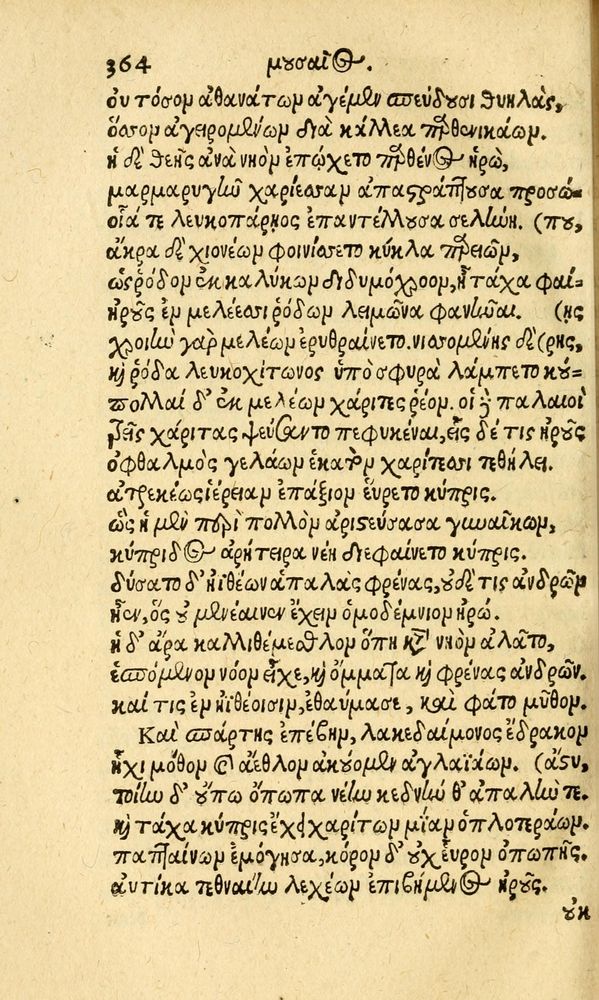 364 μουσαῖος.
οὐ τόσον ἀθανάτων ἀγέμεν σπεύδουσι θυηλὰς,
ὅσσον ἀγειρομένων διὰ κάλλεα παρθενικάων.
ἡ δὲ θεῆς ἀνὰ νηὸν ἐπῴχετο παρθένος ἡρὼ,
μαρμαρυγὴν χαρίεσσαν ἀπαστράπτουσα προσώ-
οἷά τε λευκοπάρηος ἐπαντέλλουσα σελήνη. (που,
ἄκρα δὲ χιονέων φοινίσσετο κύκλα παρειῶν,
ὡς ῥόδον ἐκ καλύκων διδυμόχροον, ἦ τάχα φαί-
ἡροῦς ἐν μελέεσσι ῥόδων λειμῶνα φανῆναι. (ης
χροιὴν γὰρ μελέων ἐρυθραίνετο. νισσομένης δὲ (ρης,
καὶ ῥόδα λευκοχίτωνος ὑπὸ σφυρὰ λάμπετο κού-
πολλαί δ' ἐκ μελέων χάριτες ῥέον. οἱ δὲ παλαιοὶ
τρεῖς χάριτας ψεύσαντο πεφυκέναι, εἷς δέ τις ἡροῦς
ὀφθαλμὸς γελάων ἑκατὸν χαρίτεσι τεθήλει.
ἀτρεκέως ἱέρειαν ἐπάξιον εὕρετο κύπρις.
ὣς ἡ μὲν περὶ πολλὸν ἀριστεύσασα γυναικῶν,
κύπριδος ἀρήτειρα νέη διεφαίνετο κύπρις.
δύσατο δ' ἠϊθέων ἁπαλὰς φρένας, οὐδέ τις ἀνδρῶν
ἦεν, ὃς οὐ μενέαινεν ἔχειν ὁμοδέμνιον ἡρώ.
ἡ δ' ἄρα καλλιθέμεθλον ὅπη κατὰ νηὸν ἀλᾶτο,
ἑσπόμενον νόον εἶχε, καὶ ὄμματα καὶ φρένας ἀνδρῶν.
καί τις ἐν ἠϊθέοισιν, ἐθαύμασε, καὶ φάτο μῦθον.
Καὶ σπάρτης ἐπέβην, λακεδαίμονος ἔδρακον
ἧχι μόθον καὶ ἄεθλον ἀκούομεν ἀγλαϊάων. (ἄστυ,
τοίην δ' οὔπω ὄπωπα νέην κεδνήν θ' ἁπαλήν τε.
καὶ τάχα κύπρις ἔχει χαρίτων μίαν ὁπλοτεράων.
παπταίνων ἐμόγησα, κόρον δ' οὐχ εὗρον ὀπωπῆς.
αὐτίκα τεθναίην λεχέων ἐπιβήμενος ἡροῦς.
οὐκ